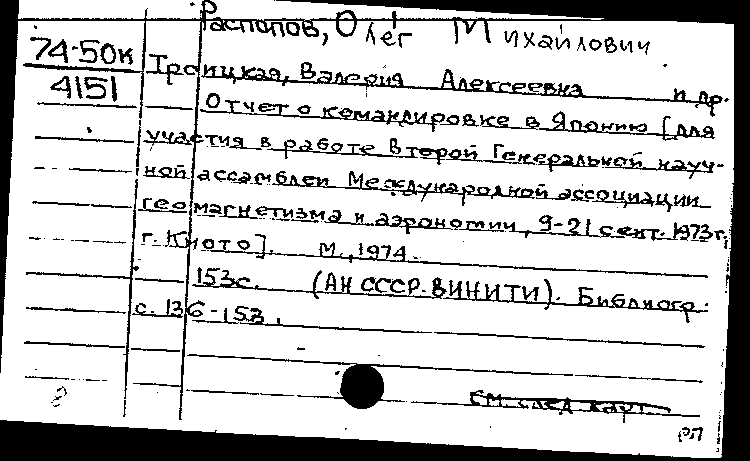 Распопов, Олег Михайлович
74-50к
4151
Троицкая, Валерия Алексеевна и др.
Отчет о командировке в Японию [для
участия в работе Второй Генеральной науч-
ной ассамблеи Международной ассоциации
геомагнетизма и аэрономии, 9-21 сент. 1973 г.,
г. Киото]. М., 1974.
153с. (АН СССР. ВИНИТИ). Библиогр.:
с. 136-153.
см. след карт.
8
рл